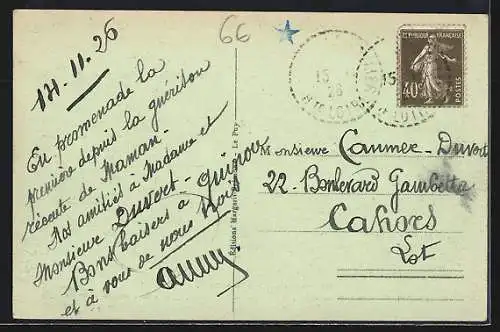 66
14.11.26
En promenade la
première depuis la guérison
récente de Maman.
Nos amitiés à Madame et
Monsieur Duvert-Guinou
Bons baisers à
et à vous de nous trois
Éditions Margerit-Brémond - Le Puy
Monsieur Caumer-Duvert
22. Boulevard Gambetta
Cahors
Lot
15
26
Hte LOIRE
15
LOIRE
RÉPUBLIQUE FRANÇAISE
40c
POSTES